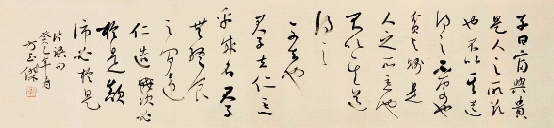 子曰富與貴
是人之所欲
也不以其道
得之不處也
貧與賤是
人之所惡也
不以其道
得之
不去也
君子去仁惡
乎成名君子
無終食
之間違
仁造次必
於是顛
沛必於是
癸巳年
玉傑